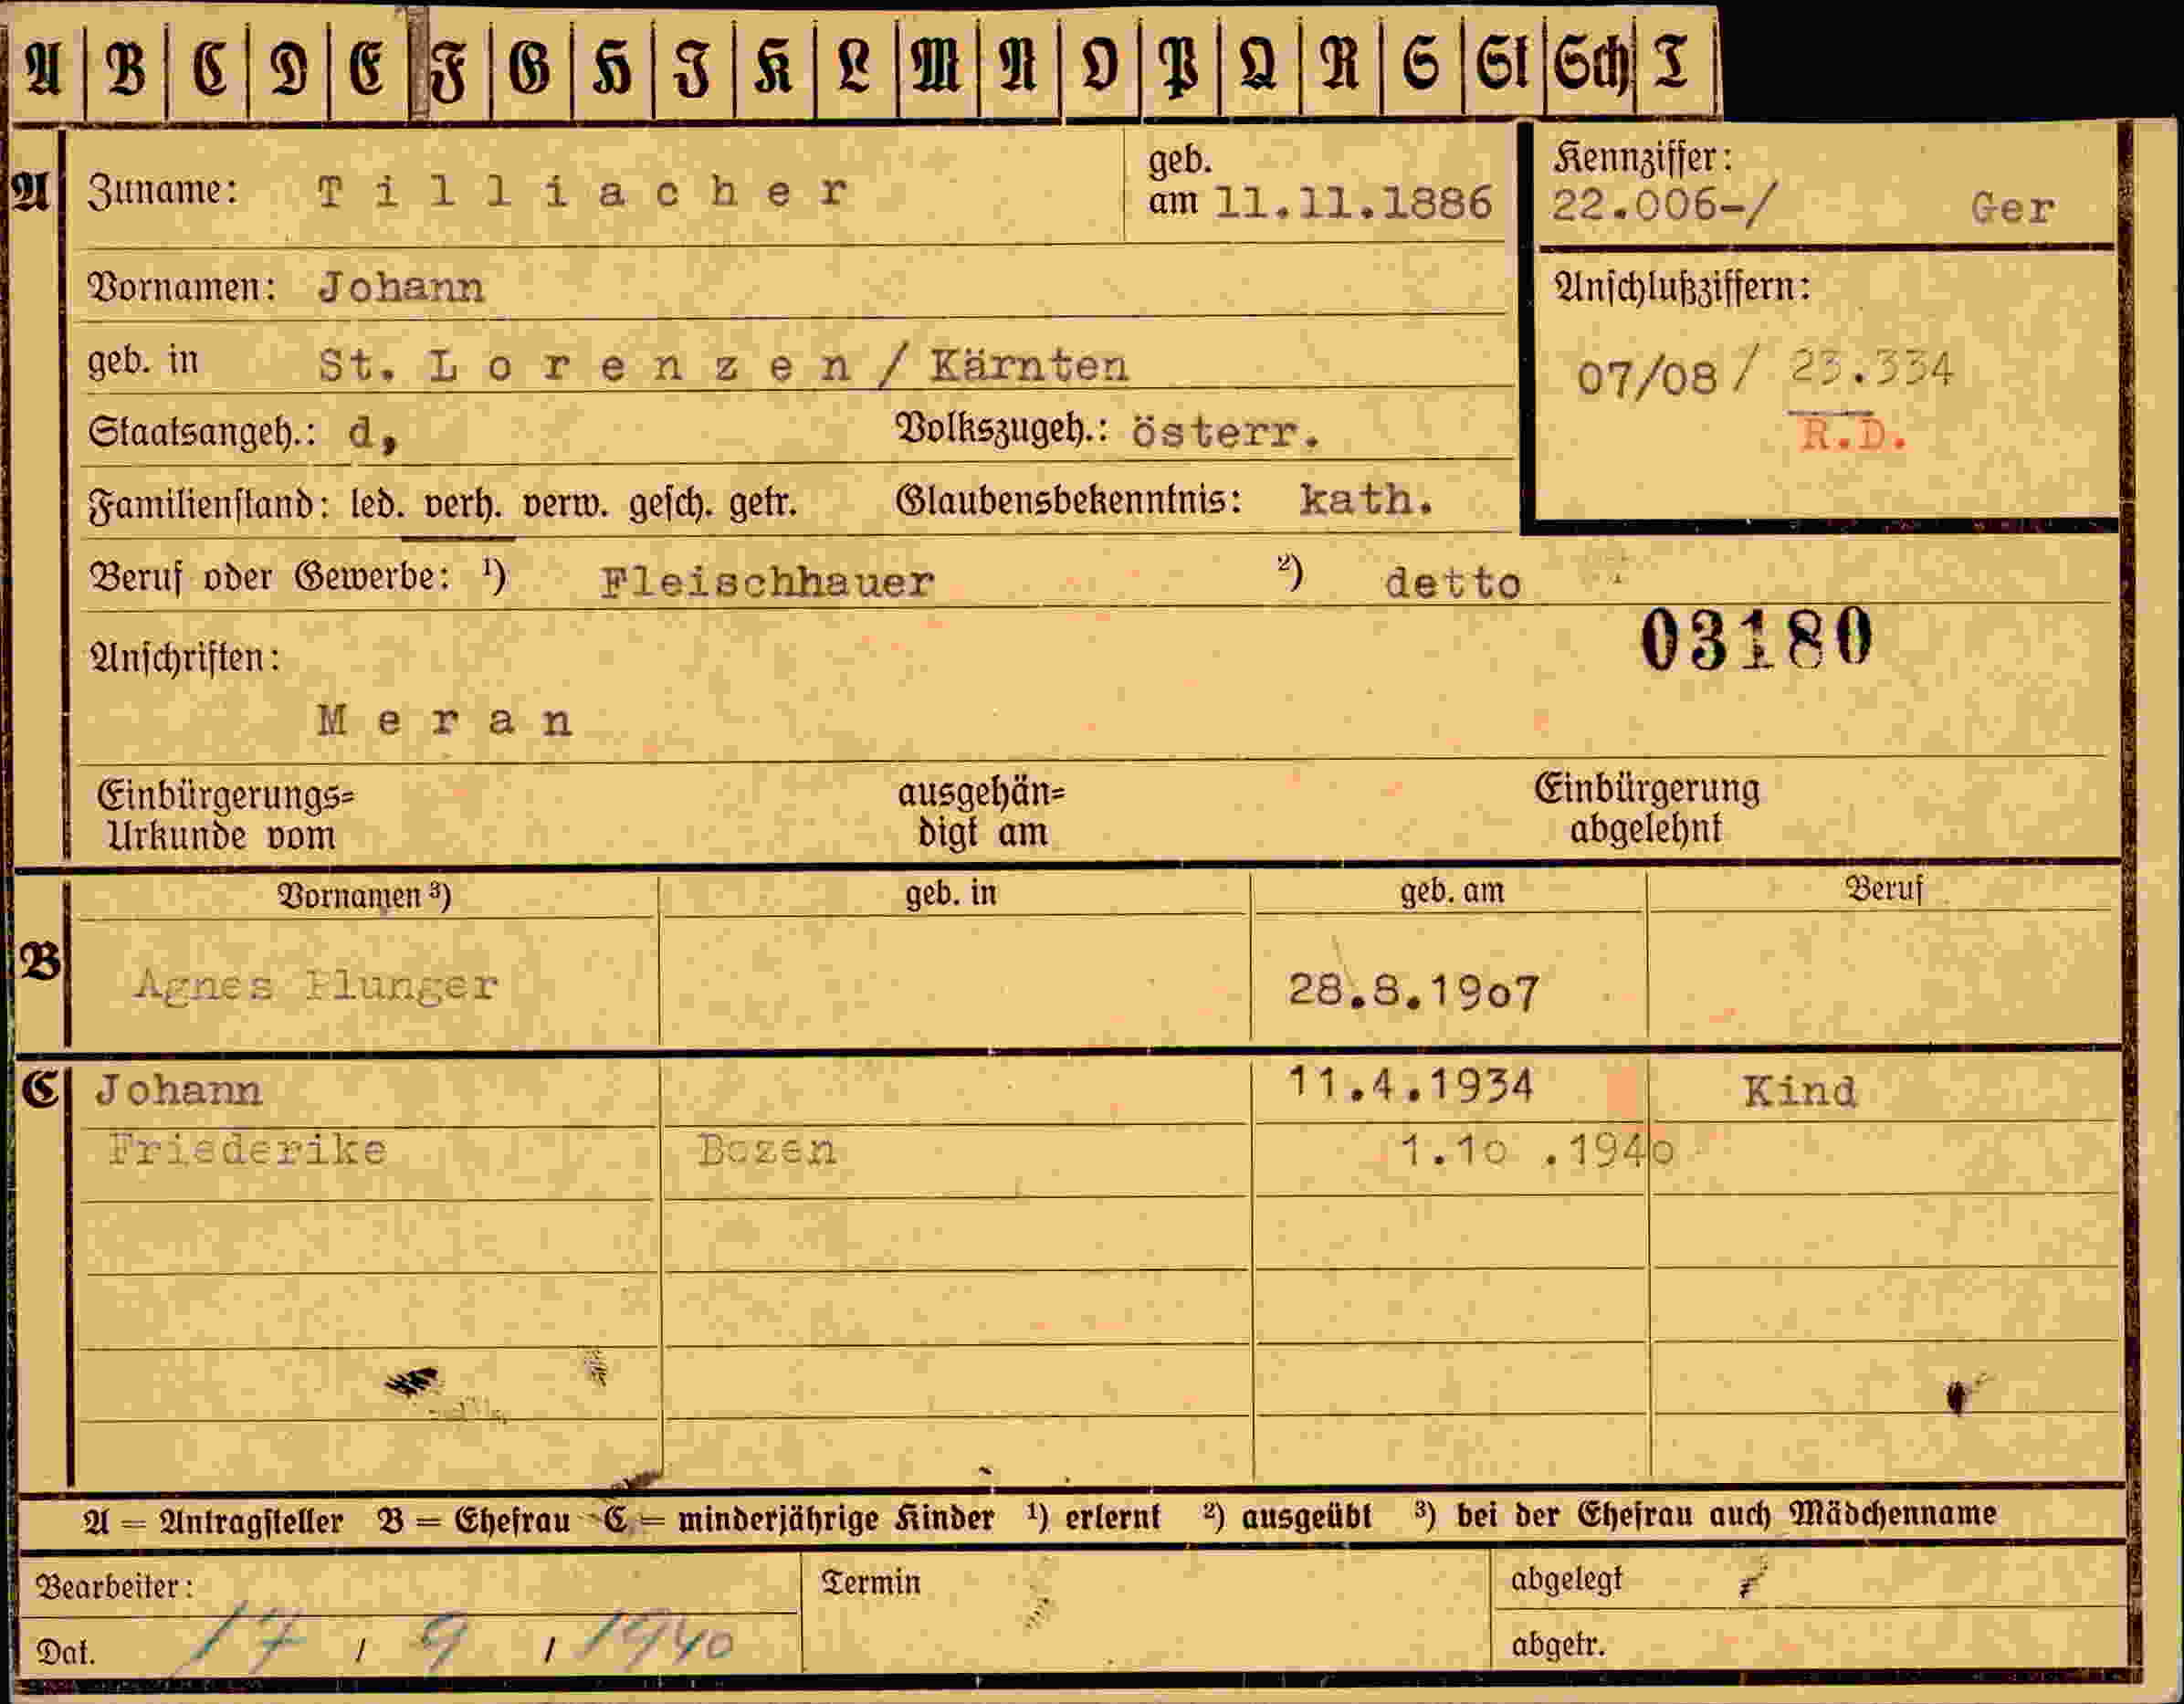 A B C D E F G H I K L M N O P Q R S St Sch T
A Zuname: Tilliacher geb. am 11.11.1886
Kennziffer:
22.006-/ Ger
Vornamen: Johann
Anschlußziffern:
geb. in St. Lorenzen / Kärnten
07/08 / 23.334
Staatsangeh.: d, Volkszugeh.: österr.
R.D.
Familienstand: led. verh. verw. gesch. getr. Glaubensbekenntnis: kath.
Beruf oder Gewerbe: ¹) Fleischhauer ²) detto
03180
Anschriften:
Meran
Einbürgerungs= ausgehän= Einbürgerung
Urkunde vom digt am abgelehnt
Vornamen ³) geb. in geb. am Beruf
B Agnes Plunger 28.8.1907
C Johann 11.4.1934 Kind
Friederike Bozen 1.10 .1940
A = Antragsteller B = Ehefrau C = minderjährige Kinder ¹) erlernt ²) ausgeübt ³) bei der Ehefrau auch Mädchenname
Bearbeiter: Termin abgelegt
Dat. 17 / 9 / 1940 abgetr.